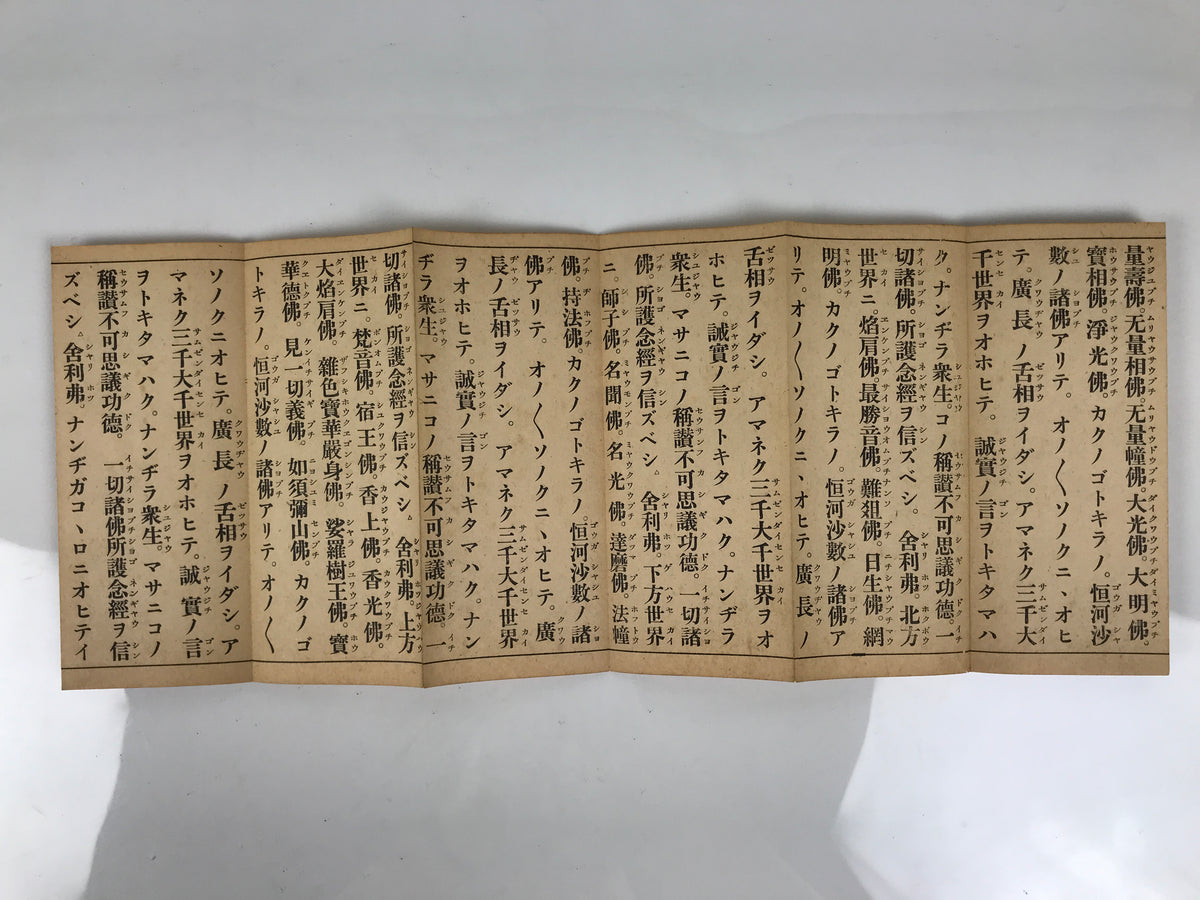 量壽佛。无量相佛。无量幢佛。大光佛。大明佛。
寶相佛。淨光佛。カクノゴトキラノ。恒河沙
數ノ諸佛アリテ。オノ〱ソノクニヽオヒ
テ。廣長ノ舌相ヲイダシ。アマネク三千大
千世界ヲオホヒテ。誠實ノ言ヲトキタマハ
ク。ナンヂラ衆生。コノ稱讃不可思議功德。一
切諸佛。所護念經ヲ信ズベシ。舍利弗。北方
世界ニ。焰肩佛。最勝音佛。難沮佛。日生佛。網
明佛。カクノゴトキラノ。恒河沙數ノ諸佛ア
リテ。オノ〱ソノクニヽオヒテ。廣長ノ
舌相ヲイダシ。アマネク三千大千世界ヲオ
ホヒテ。誠實ノ言ヲトキタマハク。ナンヂラ
衆生。マサニコノ稱讃不可思議功德。一切諸
佛。所護念經ヲ信ズベシ。舍利弗。下方世界
ニ。師子佛。名聞佛。名光佛。達磨佛。法幢
佛。持法佛。カクノゴトキラノ。恒河沙數ノ諸
佛アリテ。オノ〱ソノクニヽオヒテ。廣
長ノ舌相ヲイダシ。アマネク三千大千世界
ヲオホヒテ。誠實ノ言ヲトキタマハク。ナン
ヂラ衆生。マサニコノ稱讃不可思議功德。一
切諸佛。所護念經ヲ信ズベシ。舍利弗。上方
世界ニ。梵音佛。宿王佛。香上佛。香光佛。
大焰肩佛。雜色寶華嚴身佛。娑羅樹王佛。寶
華德佛。見一切義佛。如須彌山佛。カクノゴ
トキラノ。恒河沙數ノ諸佛アリテ。オノ〱
ソノクニオヒテ。廣長ノ舌相ヲイダシ。ア
マネク三千大千世界ヲオホヒテ。誠實ノ言
ヲトキタマハク。ナンヂラ衆生。マサニコノ
稱讃不可思議功德。一切諸佛所護念經ヲ信
ズベシ。舍利弗。ナンヂガコヽロニオヒテイ